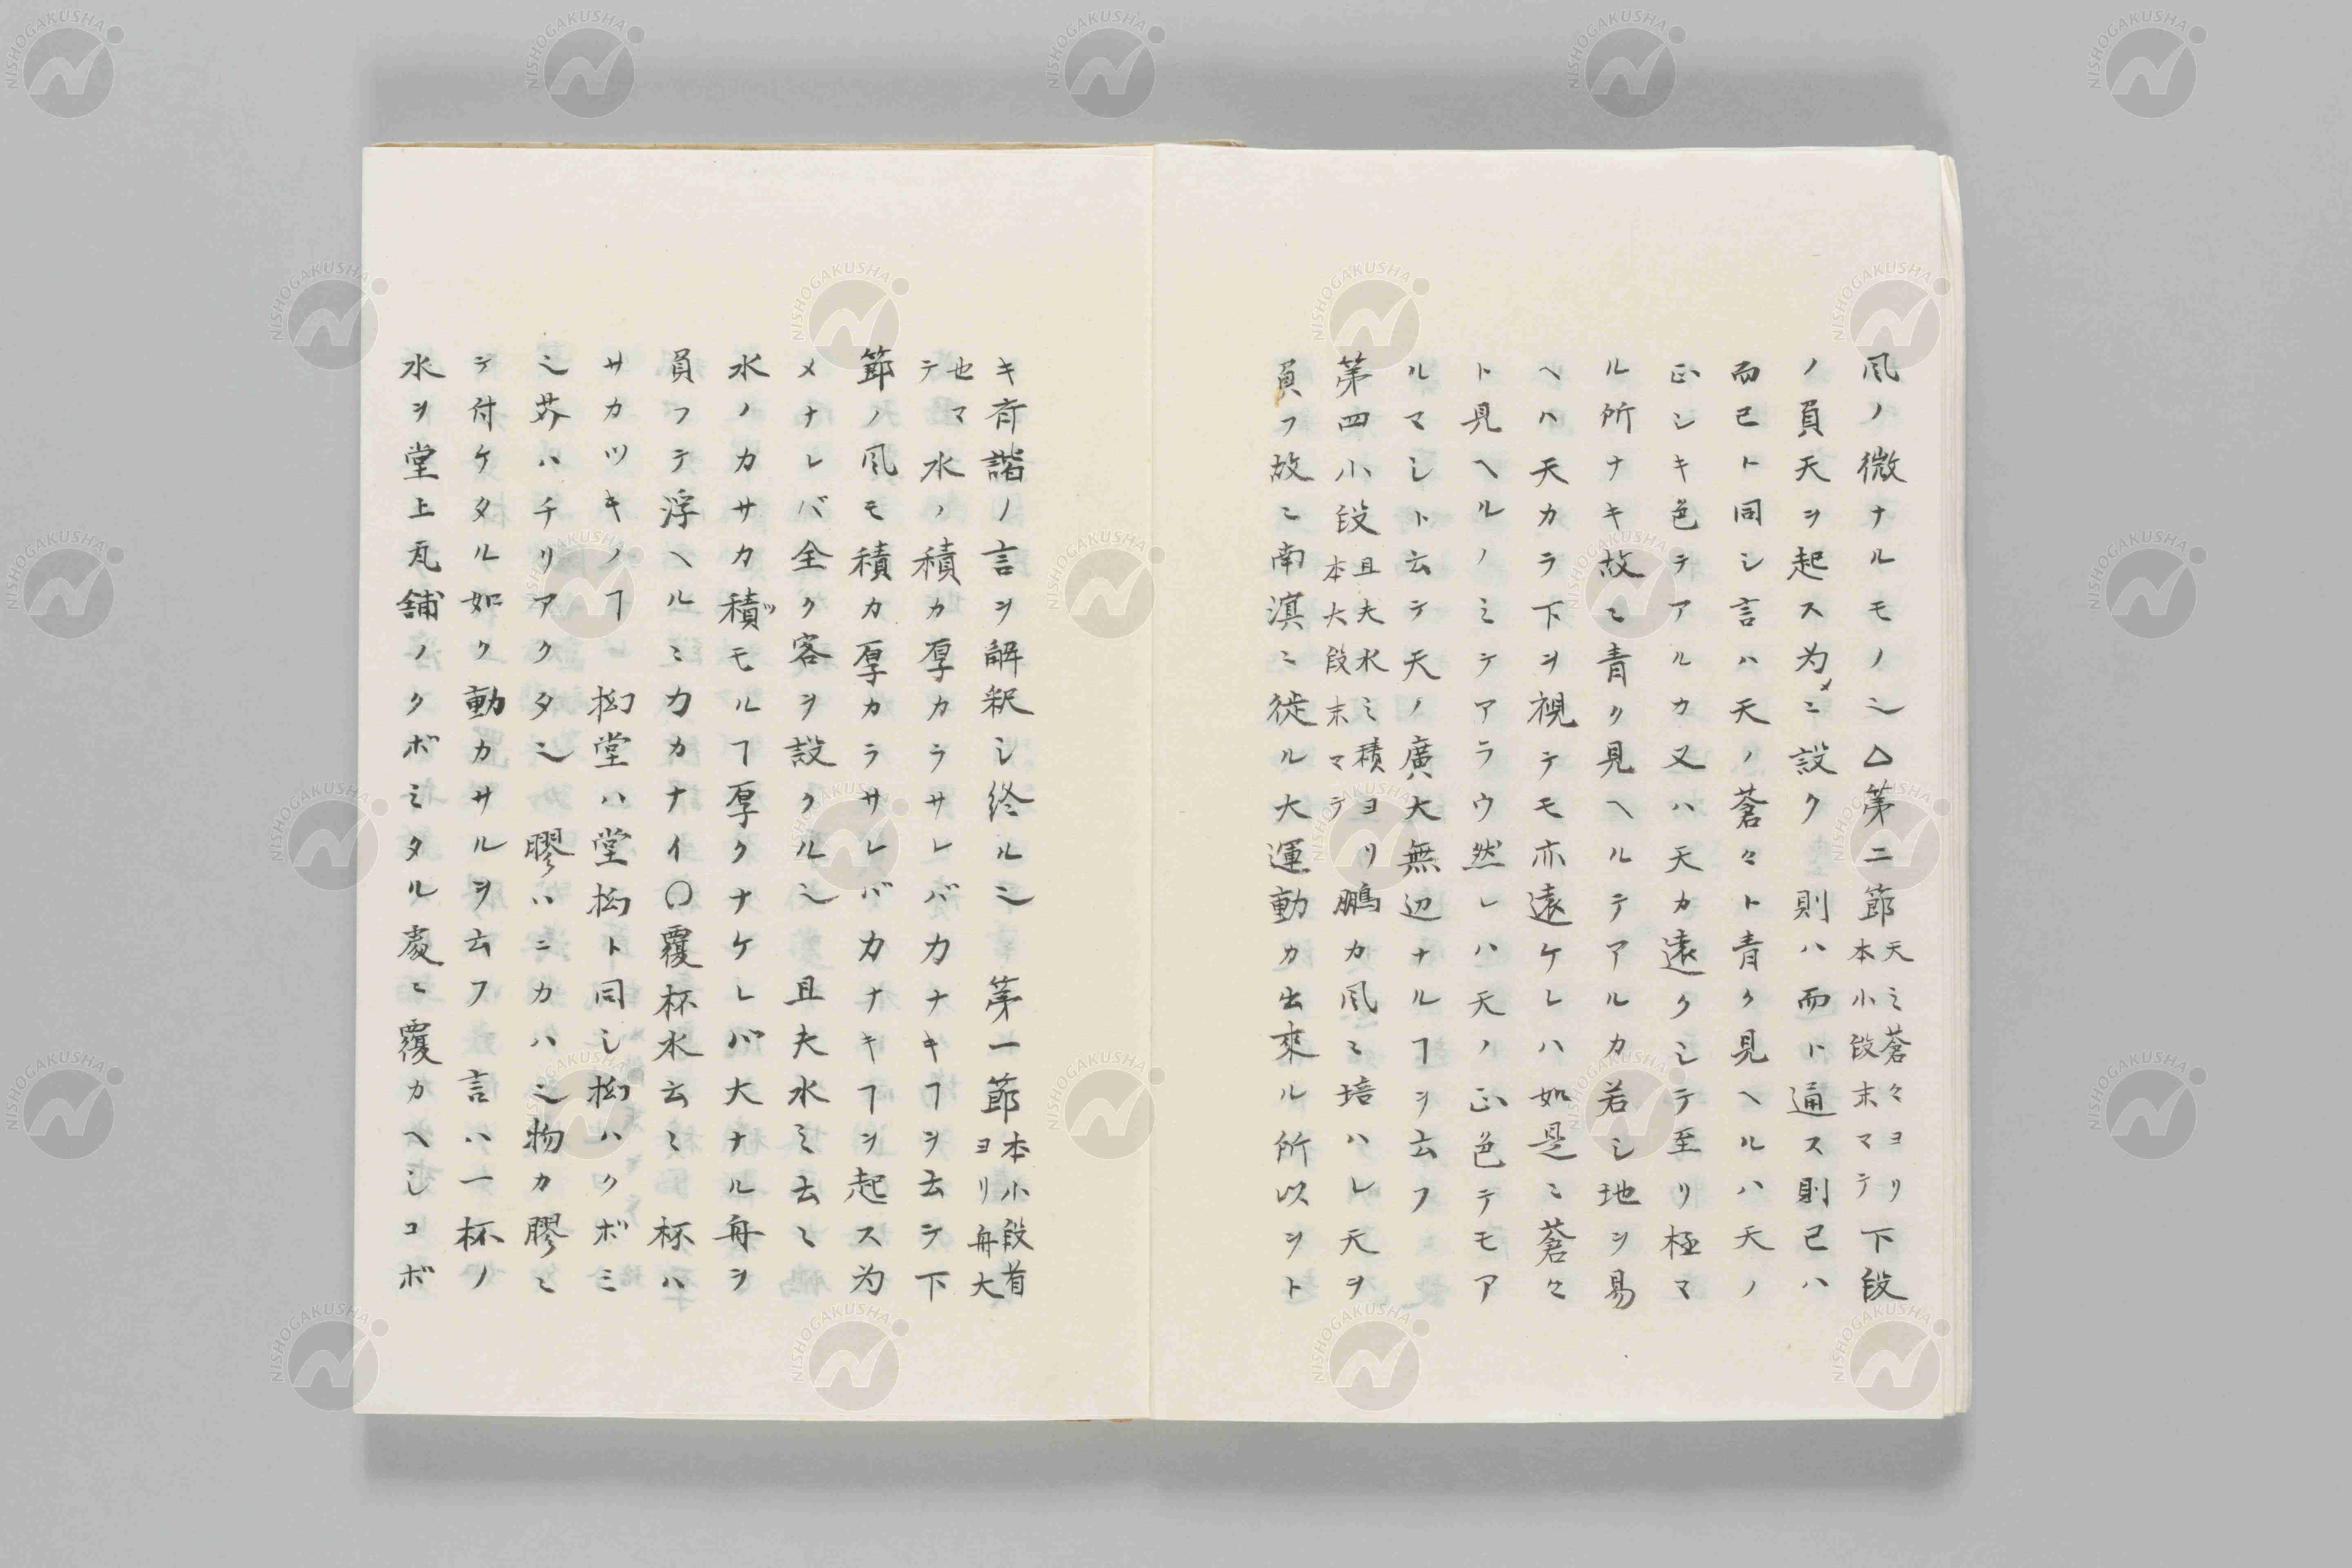 風ノ微ナルモノ之△第二節天ミ蒼々ヨリ本小段末マテ下段
ノ負天ヲ起ス為メニ設ク 則ハ而ト通ス則已ハ
而已ト同シ言ハ天ノ蒼々ト青ク見ヘルハ天ノ
正シキ色テアルカ又ハ天カ遠クシテ至リ極マ
ル所ナキ故ニ青ク見ヘルテアルカ若シ地ヲ易
ヘハ天カラ下ヲ視テモ亦遠ケレハ如是ニ蒼々
ト見ヘルノミテアラウ然レハ天ノ正色テモア
ルマシト云テ天ノ廣大無辺ナルヿヲ云フ
第四小段且夫水ミ積ヨリ本大段末マテ鵬カ風ニ培ハレ天ヲ
負フ故ニ南溟ニ徙ル大運動カ出来ル所以ヲト
キ斉諧ノ言ヲ解釈シ終ル之 第一節本小段首ヨリ舟大
也マテ水ノ積カ厚カラサレバ力ナキヿヲ云テ下
節ノ風モ積カ厚カラサレバ力ナキヿヲ起ス为
メナレバ全ク客ヲ設クル之 且夫水ミ云々
水ノカサカ積ツモルヿ厚クナケレバ大ナル舟ヲ
負フテ浮ヘルミ力カナイ〇覆杯水云々 杯ハ
サカツキノヿ 坳堂ハ堂坳ト同シ坳ハクボミ
之芥ハチリアクタ之 膠ハニカハ之物カ膠ミ
テ付ケタル如ク動カサルヲ云フ 言ハ一杯ノ
水ヲ堂上瓦舗ノクボミタル處ニ覆カヘシコボ